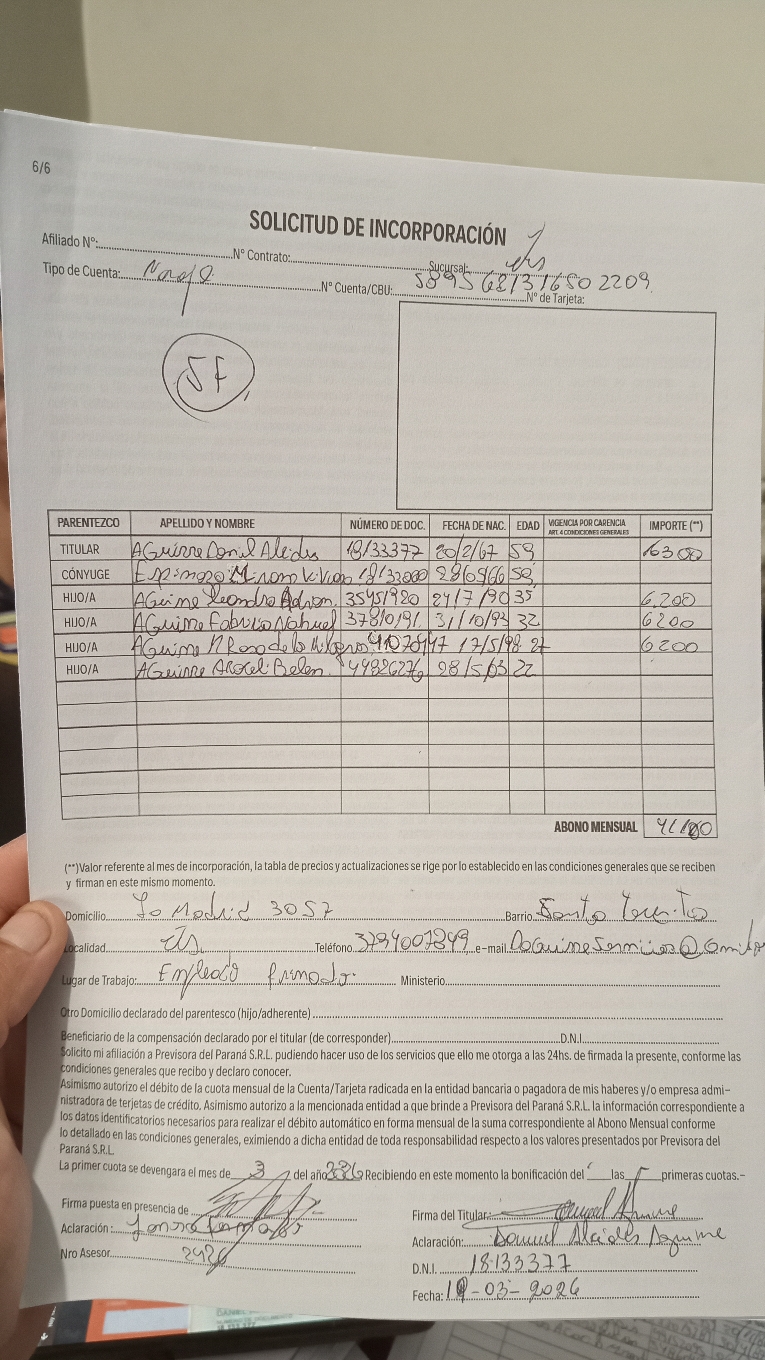 6/6
SOLICITUD DE INCORPORACIÓN
Afiliado Nº: Nº Contrato: Sucursal:
Tipo de Cuenta: Nº Cuenta/CBU: 5895 6813 1650 2209 Nº de Tarjeta:
5F
PARENTEZCO APELLIDO Y NOMBRE NÚMERO DE DOC. FECHA DE NAC. EDAD VIGENCIA POR CARENCIA ART. 4 CONDICIONES GENERALES IMPORTE (**)
TITULAR AGuirre Alcides 18133377 20/2/67 59 16300
CÓNYUGE 18133000 28/09/66 59
HIJO/A AGuirre Leandro Adrian 35451920 24/7/90 35 6.200
HIJO/A AGuirre Fabricio Nahuel 37810191 31/10/93 32 6200
HIJO/A AGuirre M Rosa de los Milagros 41078147 17/5/98 27 6200
HIJO/A AGuirre Belen 44826276 28/5/03 22
ABONO MENSUAL
(**)Valor referente al mes de incorporación, la tabla de precios y actualizaciones se rige por lo establecido en las condiciones generales que se reciben
y firman en este mismo momento.
Domicilio La Madrid 3057 Barrio
Localidad Teléfono 3794007849 e-mail
Lugar de Trabajo: Empleado Ministerio
Otro Domicilio declarado del parentesco (hijo/adherente)
Beneficiario de la compensación declarado por el titular (de corresponder) D.N.I.
Solicito mi afiliación a Previsora del Paraná S.R.L. pudiendo hacer uso de los servicios que ello me otorga a las 24hs. de firmada la presente, conforme las
condiciones generales que recibo y declaro conocer.
Asimismo autorizo el débito de la cuota mensual de la Cuenta/Tarjeta radicada en la entidad bancaria o pagadora de mis haberes y/o empresa admi-
nistradora de terjetas de crédito. Asimismo autorizo a la mencionada entidad a que brinde a Previsora del Paraná S.R.L. la información correspondiente a
los datos identificatorios necesarios para realizar el débito automático en forma mensual de la suma correspondiente al Abono Mensual conforme
lo detallado en las condiciones generales, eximiendo a dicha entidad de toda responsabilidad respecto a los valores presentados por Previsora del
Paraná S.R.L.
La primer cuota se devengara el mes de 3 del año 2026 Recibiendo en este momento la bonificación del las primeras cuotas.-
Firma puesta en presencia de
Firma del Titular:
Aclaración:
Aclaración: Daniel Alcides Aguirre
Nro Asesor 2426
D.N.I. 18.133377
Fecha: -03-2026